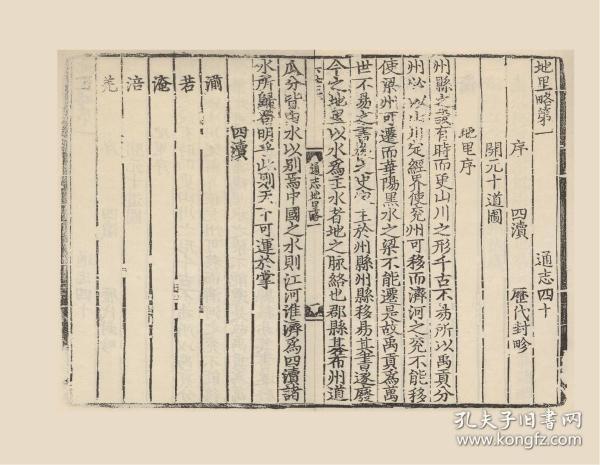 地里略第一　通志四十
序　四瀆　歷代封畛
開元十道圖
地里序
州縣之設有時而更山川之形千古不易所以禹貢分
州必以山川定經界使兗州可移而濟河之兗不能移
使梁州可遷而華陽黑水之梁不能遷是故禹貢爲萬
世不易之書後之史家主於州縣州縣移易其書遂廢
今之地里以水爲主水者地之脉絡也郡縣棊布州道
通志地里略一
瓜分皆由水以別焉中國之水則江河淮濟爲四瀆諸
水所歸苟明乎此則天下可運於掌
四瀆
孔夫子旧书网
www.kongfz.com